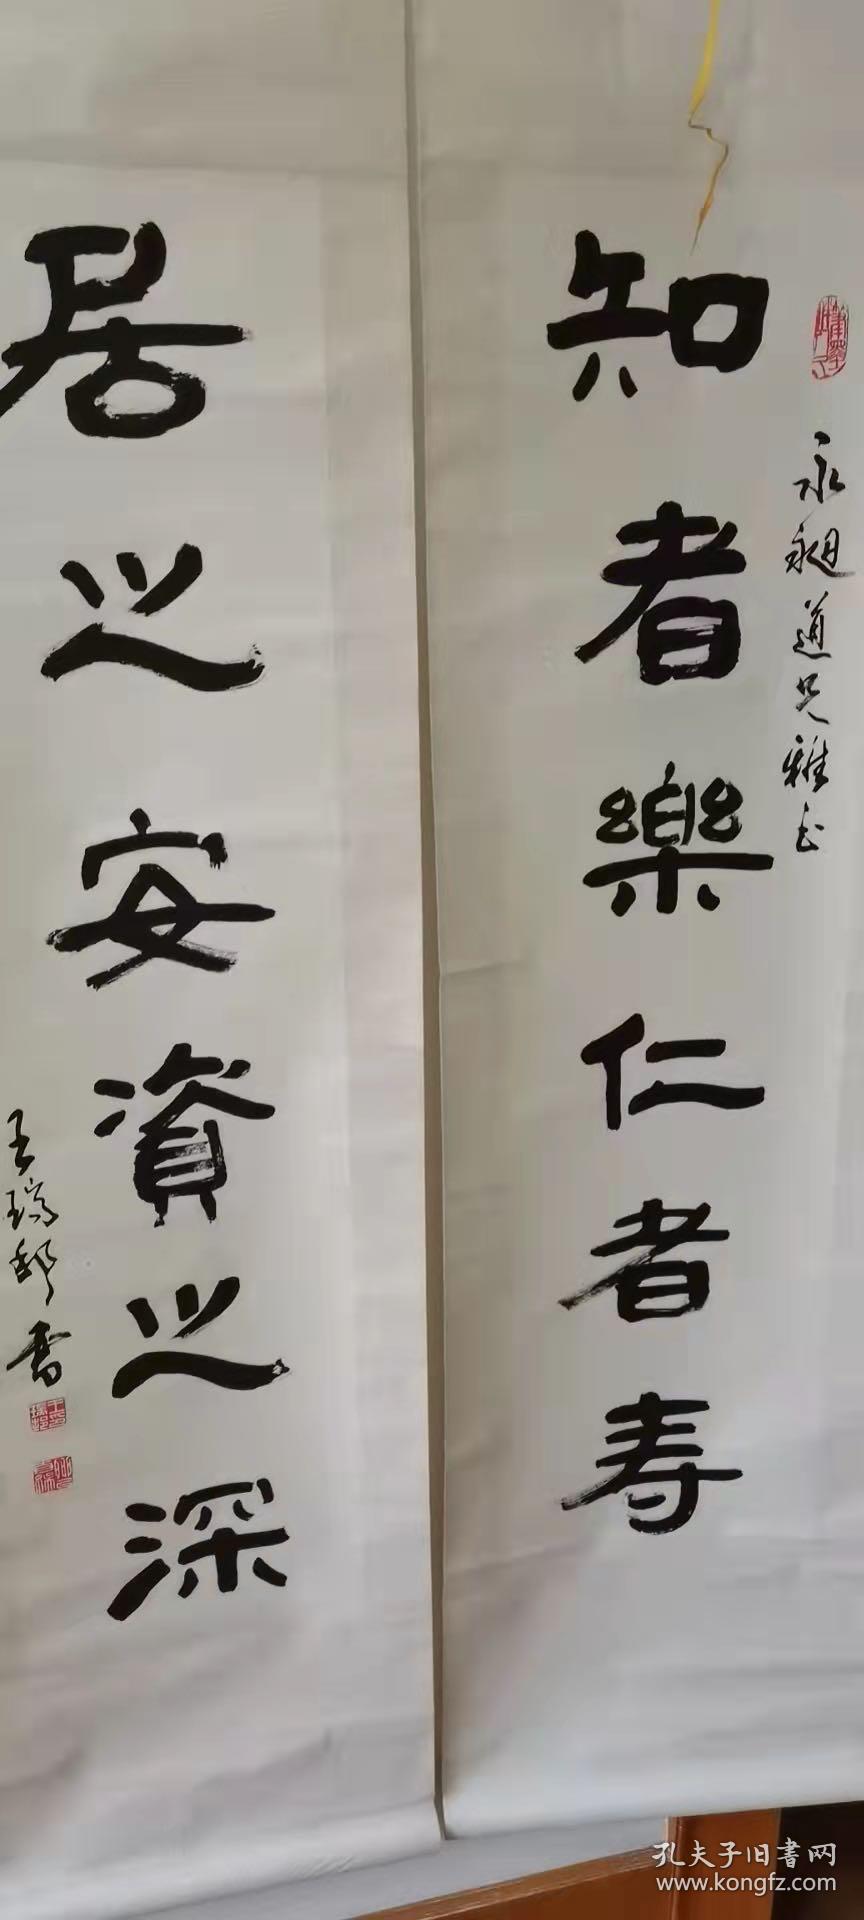 知者樂仁者寿
永昶道兄雅正
居之安資之深
王瑞邨書
孔夫子旧書网
www.kongfz.com